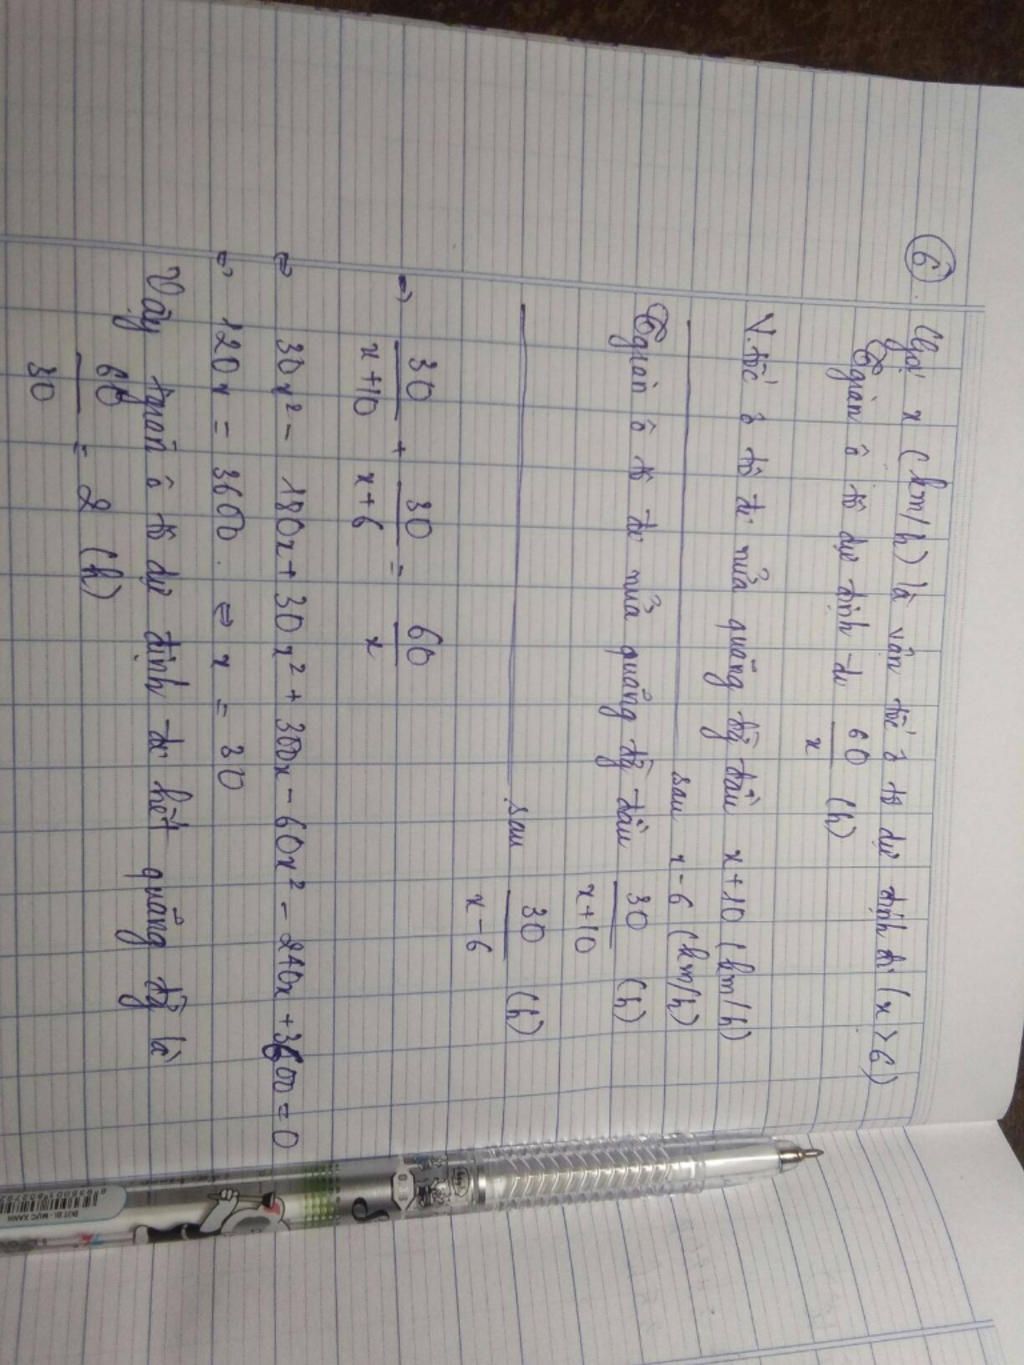 6
Gọi x (km/h) là vận tốc ô tô dự định đi (x > 6)
Tgian ô tô dự định đi 60/x (h)
V.tốc ô tô đi nửa quãng đg đầu x+10 (km/h)
sau x-6 (km/h)
Tgian ô tô đi nửa quãng đg đầu 30/x+10 (h)
sau 30/x-6 (h)
=> 30/x+10 + 30/x+6 = 60/x
⇔ 30x² - 180x + 30x² + 300x - 60x² - 240x + 3600 = 0
⇔ 120x = 3600 ⇔ x = 30
Vậy tgian ô tô dự định đi hết quãng đg là
60/30 = 2 (h)
BÚT BI - MỰC XANH